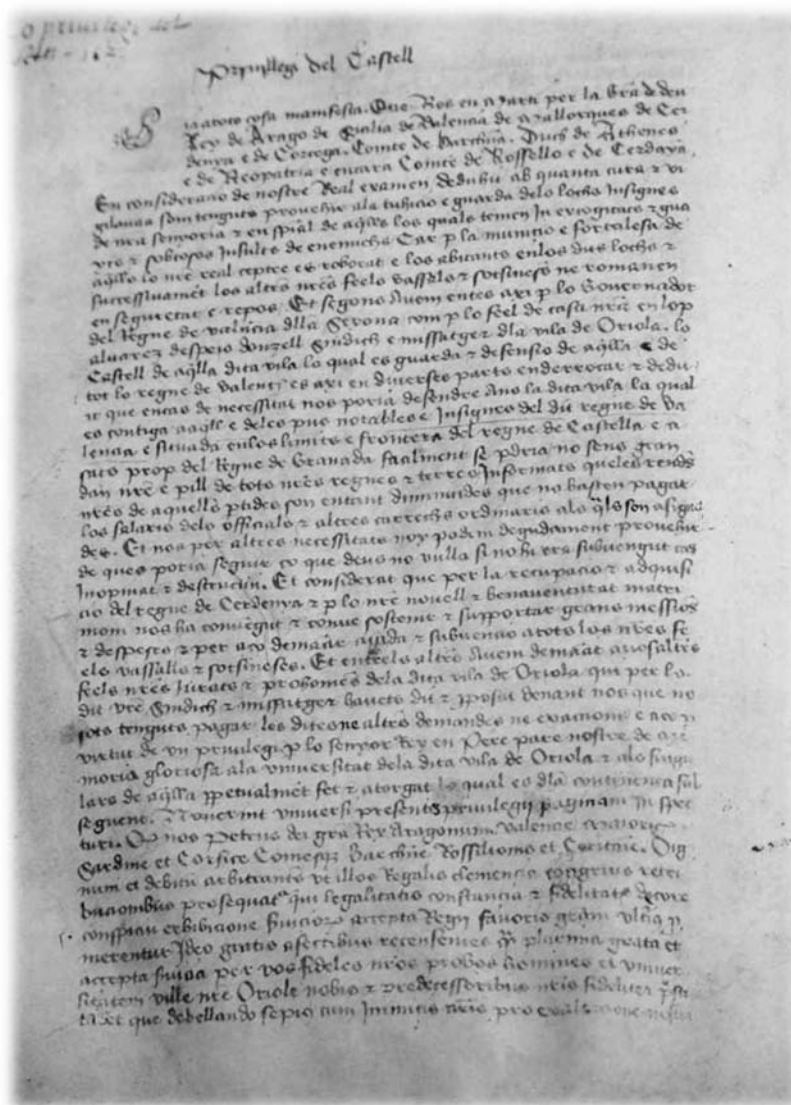 o privilegi del
Privilegi del Castell
Sia atots cosa manifesta. Que Nos en Marti per la Gra de deu
Rey de Arago de Sicilia de Valencia de Mallorques de Cer
denya e de Corcega. Comte de Barchna. Duch de Athenes
e de Neopatria e encara Comte de Rossello e de Cerdaya.
En consideracio de nostre Real examen deduhit ab quanta cura z vi
gilancia som tenguts provehir ala tuhicio e guarda dels lochs Insignes
de nra senyoria z en spial de aqlls los quals temen In excogitats z
vts z sobtosos Insults de enemichs Car p la municio e fortalesa de
aqlls lo nre real ceptre es roborat e los abitants enlos dits lochs z
successivamet los altres nres feels vassalls z sotsmeses ne romanen
en seguretat e repos. Et segons Avem entes axi p lo Governador
del Regne de Valecia dlla Sexona com p lo feel de casa nra en lop
alvarez despejo donzell Sindich e missatger dla vila de Oriola. lo
Castell de aqlla dita vila lo qual es guarda z defensio de aqlla e de
tot lo regne de Valenti es axi en diverses parts enderrocat z dedu
it que encas de necessitat nos poria defendre Ans la dita vila la qual
es contigua aqll e deles pus notables e Insignes del dit regne de Va
lencia e situada enlos limits e frontera del regne de Castella e a
sats prop del Regne de Granada facilment se pdria no sens gran
dan nre e pill de tots nres regnes z terres Informats queles rendes
nres de aquelles ptides son entant diminuides que no basten pagar
los salaris dels officials z altres carrechs ordinaris als qls son asigna
des. Et nos per altres necessitats noy podem degudament provehir
de ques poria seguir ço que deus no vulla si no hi era subvengut cas
Inopinat z destruccio. Et considerat que per la recupacio z adquisi
cio del regne de Cerdenya z p lo nre novell z benaventurat matri
moni nos ha convegut z conve sostenir z supportar grans messios
z despeses z per aço demanar ajuda z subvencio atots los nres fe
els vassalls z sotsmeses. Et entrels altres Avem demanat avosaltres
feels nres Jurats z prohomes dela dita vila de Oriola qui per lo
dit vre Sindich z missatger havets dit z pposat denant nos que no
sots tenguts pagar les dites ne altres demandes ne exaccions e aço p
virtut de un privilegi p lo senyor Rey en Pere pare nostre de
memoria gloriosa ala universitat dela dita vila de Oriola z als singu
lars de aqlla ppetualmet fet z atorgat lo qual es dla continencia sub
seguent. Noverint universi presentis privilegii paginam Inspec
turi. Q nos Petrus dei gra Rex Aragonum Valencie Maiorice
Sardinie et Corsice Comesq Barchne Rossilionis et Ceritanie. Dig
num et debitu arbitrantes ut illos Regalis clemencia
prosequat qui legalitatis constancia z fidelitatis decore
conspicua exhibicione accepta Regii favoris gram
merentur Ideo gratis afectibus recensentes plurima grata et
accepta per vos fideles nros probos homines et univer
sitatem ville nre Oriole nobis z predecessoribus nris fideliter
que debellando sepius cum Inimicis nris pro